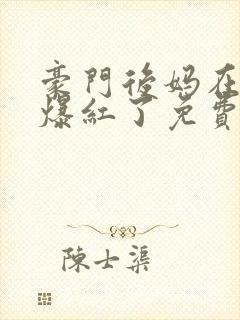 豪門後媽在
爆紅了免費
陳士渠